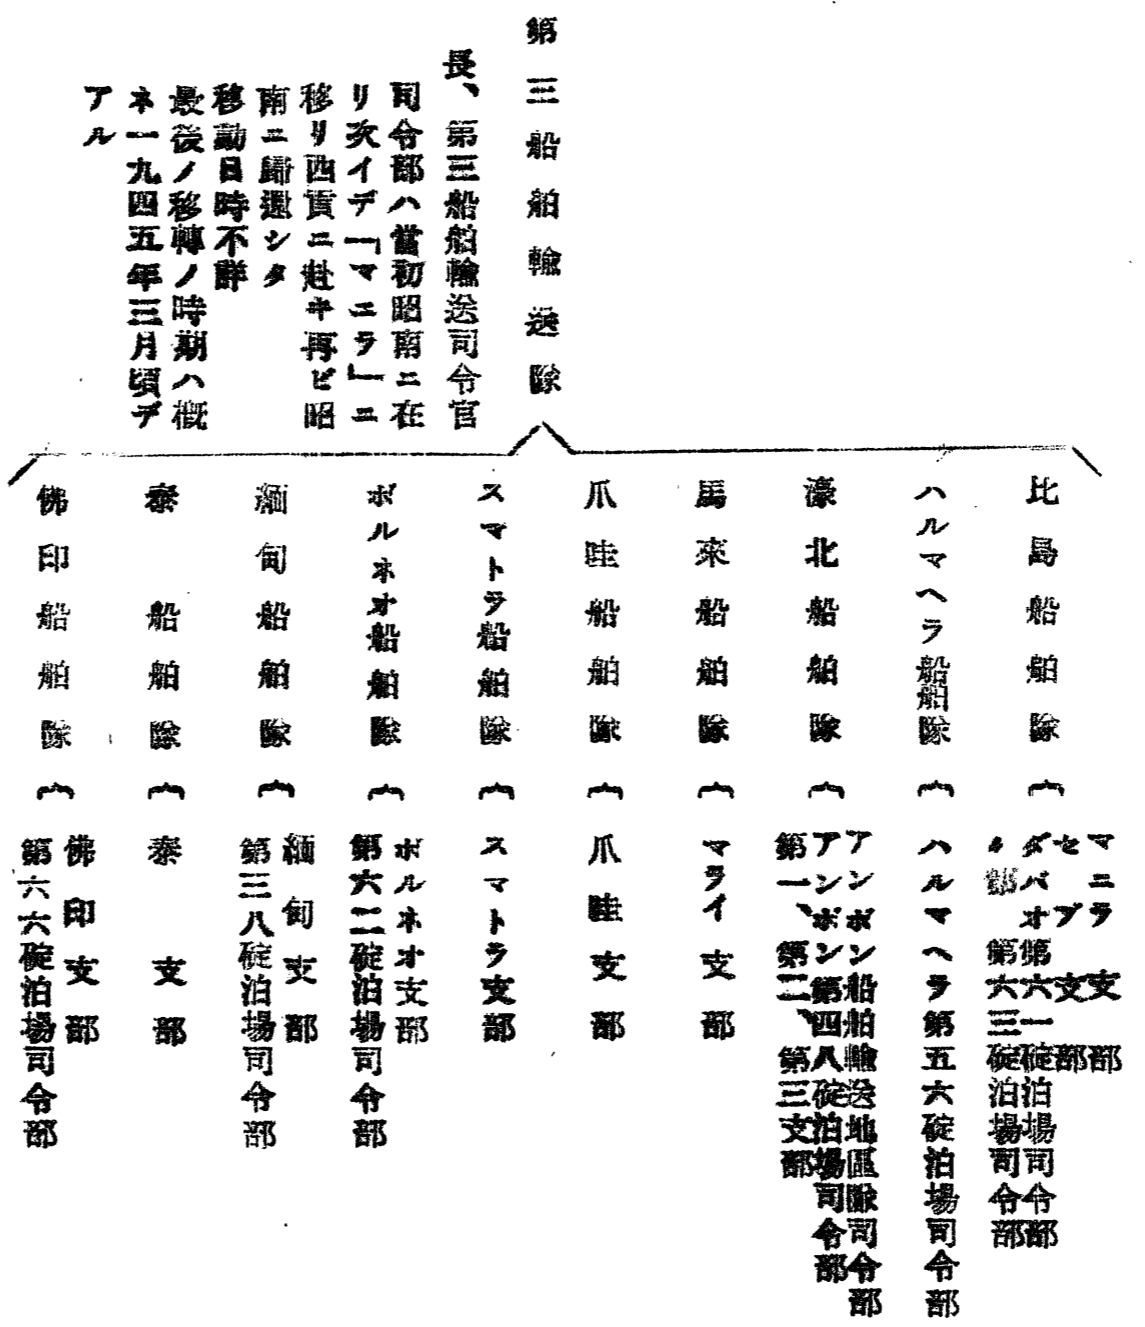 第三船舶輸送隊
長、第三船舶輸送司令官
司令部ハ當初昭南ニ在
リ次イデ「マニラ」ニ
移リ西貢ニ赴キ再ビ昭
南ニ歸還シタ
移動日時不詳
最後ノ移轉ノ時期ハ概
ネ一九四五年三月頃デ
アル
比島船舶隊
マニラ支部
セブ支部
ダバオ第六一碇泊場司令部
第六三碇泊場司令部
ハルマヘラ船舶隊
ハルマヘラ第五六碇泊場司令部
濠北船舶隊
アンボン船舶輸送地區隊司令部
アンボン第四八碇泊場司令部
第一、第二、第三支部
馬來船舶隊
マライ支部
爪哇船舶隊
爪哇支部
スマトラ船舶隊
スマトラ支部
ボルネオ船舶隊
ボルネオ支部
第六二碇泊場司令部
緬甸船舶隊
緬甸支部
第三八碇泊場司令部
泰船舶隊
泰支部
佛印船舶隊
佛印支部
第六六碇泊場司令部